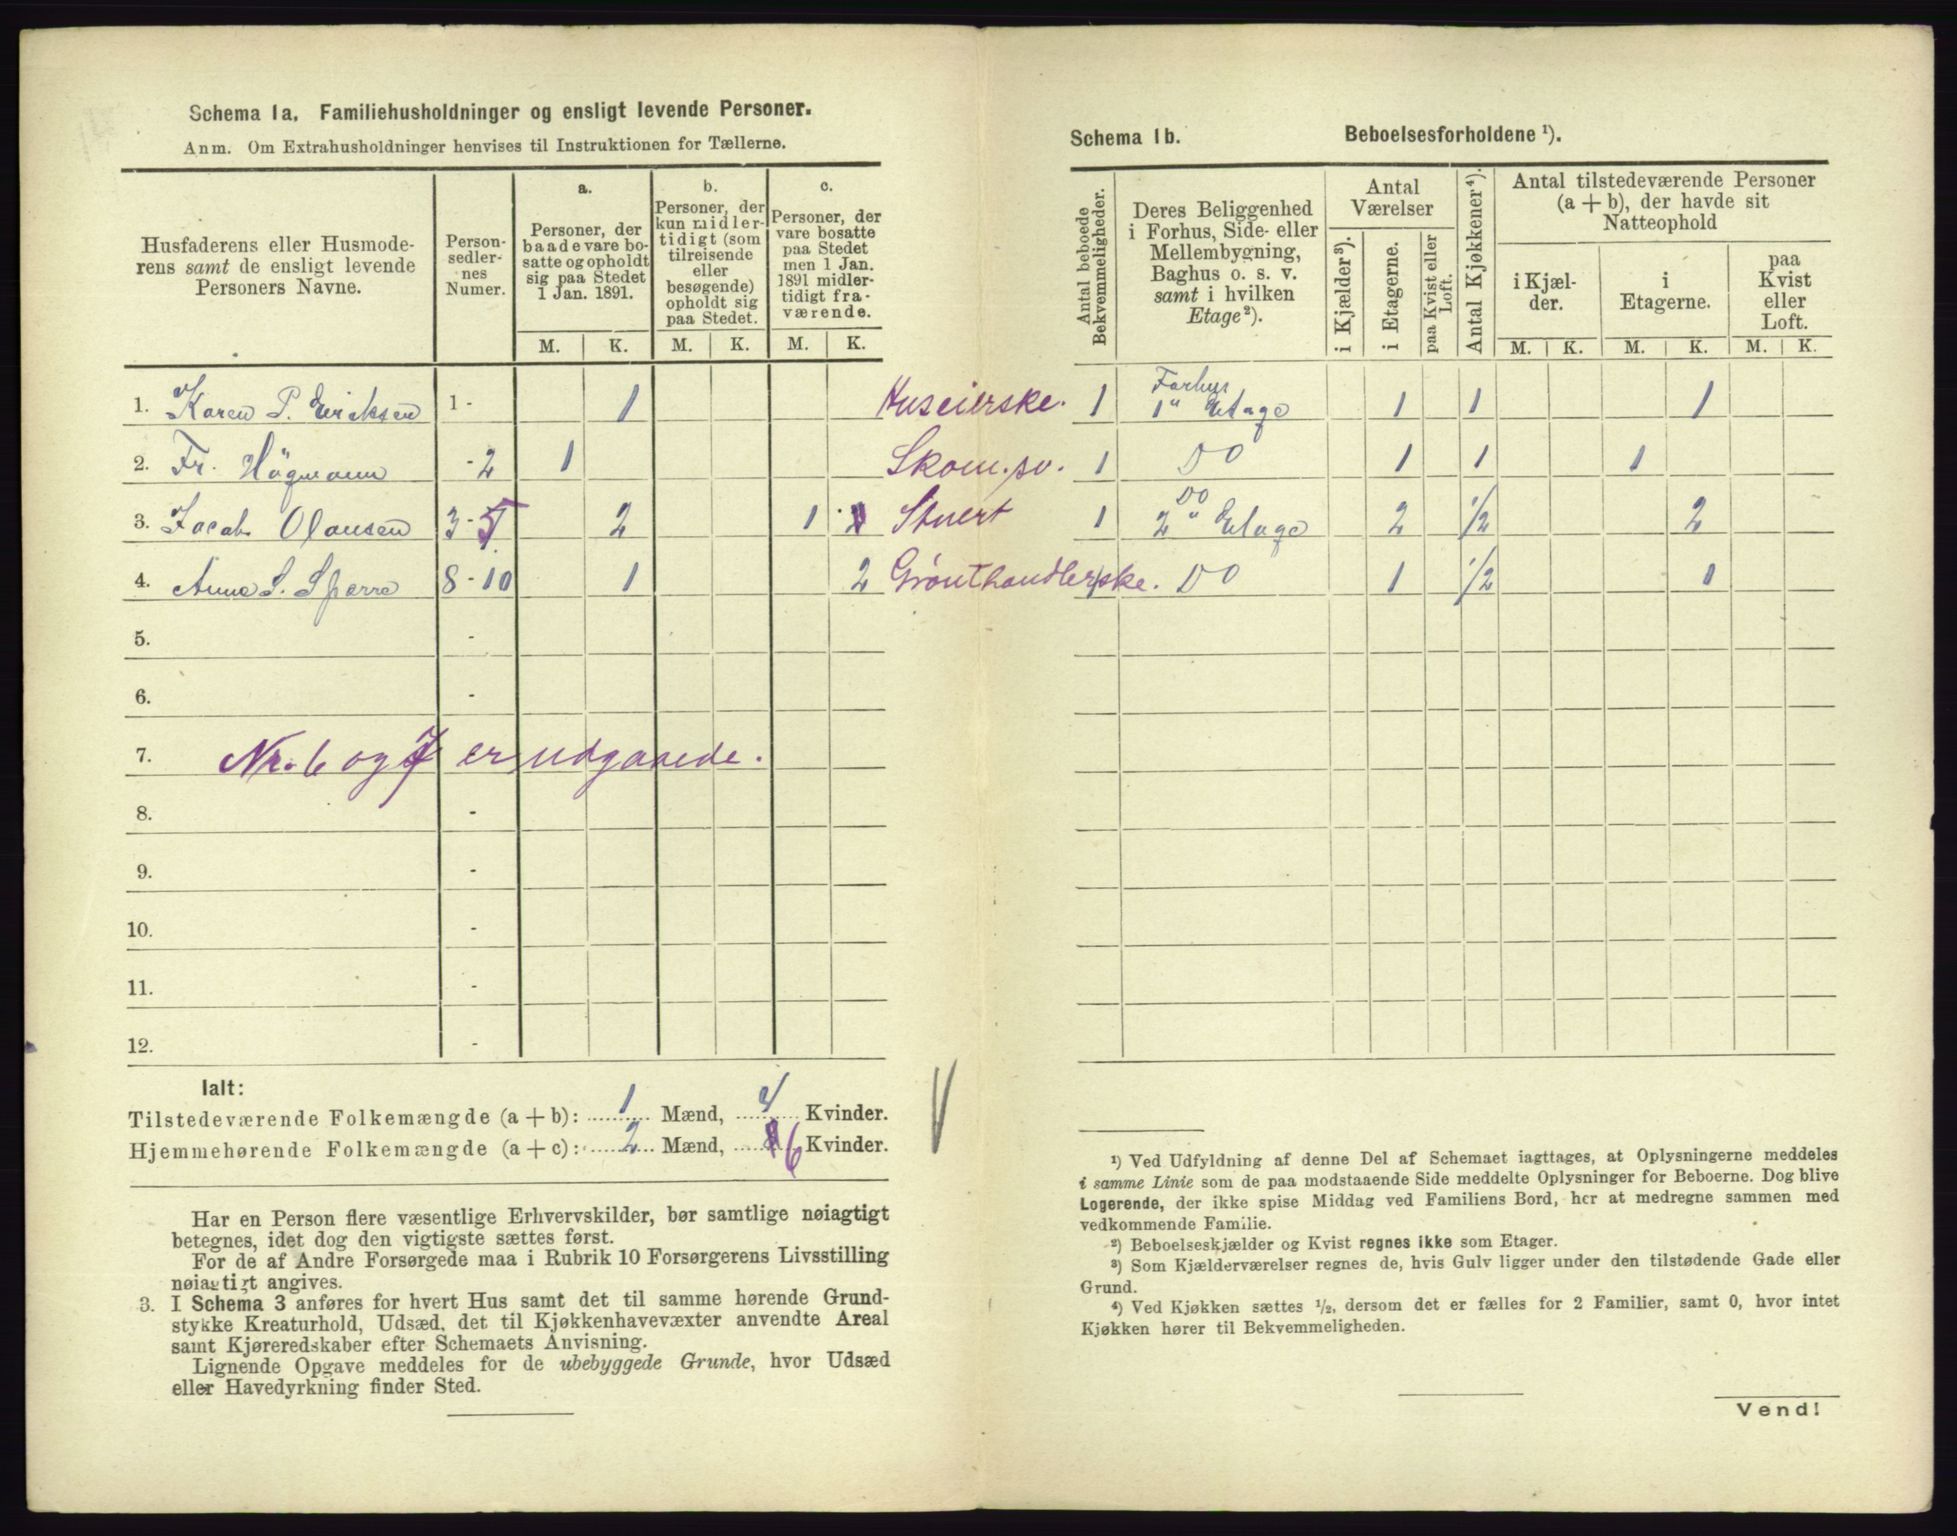 Schema 1a. Familiehusholdninger og ensligt levende Personer.
Anm. Om Extrahusholdninger henvises til Instruktionen for Tællerne.
Husfaderens eller Husmoderens samt de ensligt levende Personers Navne.
Personsedlernes Numer.
a.
Personer, der baade vare bosatte og opholdt sig paa Stedet 1 Jan. 1891.
b.
Personer, der kun midlertidigt (som tilreisende eller besøgende) opholdt sig paa Stedet.
c.
Personer, der vare bosatte paa Stedet men 1 Jan. 1891 midlertidigt fraværende.
M. K. M. K. M. K.
1. Karen P. Ericksen 1 - 1 Huseierske.
2. Fr. Högmann - 2 1 Skom.sv.
3. Jacob Olausen 3 - 5 2 1 Stuert
4. Anne S. Sperre 8 - 10 1 2 Grønthandlerske.
5. -
6. -
7. Nr. 6 og 7 er udgaaede.
8. -
9. -
10. -
11. -
12. -
Ialt:
Tilstedeværende Folkemængde (a + b): 1 Mænd, 4 Kvinder.
Hjemmehørende Folkemængde (a + c): 2 Mænd, 6 Kvinder.
Har en Person flere væsentlige Erhvervskilder, bør samtlige nøiagtigt
betegnes, idet dog den vigtigste sættes først.
For de af Andre Forsørgede maa i Rubrik 10 Forsørgerens Livsstilling
nøiagtigt angives.
3. I Schema 3 anføres for hvert Hus samt det til samme hørende Grund-
stykke Kreaturhold, Udsæd, det til Kjøkkenhavevæxter anvendte Areal
samt Kjøreredskaber efter Schemaets Anvisning.
Lignende Opgave meddeles for de ubebyggede Grunde, hvor Udsæd
eller Havedyrkning finder Sted.
Schema 1b. Beboelsesforholdene ¹).
Antal beboede Bekvemmeligheder.
Deres Beliggenhed i Forhus, Side- eller Mellembygning, Baghus o. s. v. samt i hvilken Etage²).
Antal Værelser
i Kjælder³).
i Etagerne.
paa Kvist eller Loft.
Antal Kjøkkener⁴).
Antal tilstedeværende Personer (a + b), der havde sit Natteophold
i Kjælder.
i Etagerne.
paa Kvist eller Loft.
M. K. M. K. M. K.
1 Forhus 1" Etage 1 1 1
1 Do 1 1 1
1 Do 2" Etage 2 1/2 2
1 Do 1 1/2 1
¹) Ved Udfyldning af denne Del af Schemaet iagttages, at Oplysningerne meddeles
i samme Linie som de paa modstaaende Side meddelte Oplysninger for Beboerne. Dog blive
Logerende, der ikke spise Middag ved Familiens Bord, her at medregne sammen med
vedkommende Familie.
²) Beboelseskjælder og Kvist regnes ikke som Etager.
³) Som Kjælderværelser regnes de, hvis Gulv ligger under den tilstødende Gade eller
Grund.
⁴) Ved Kjøkken sættes ½, dersom det er fælles for 2 Familier, samt 0, hvor intet
Kjøkken hører til Bekvemmeligheden.
Vend!